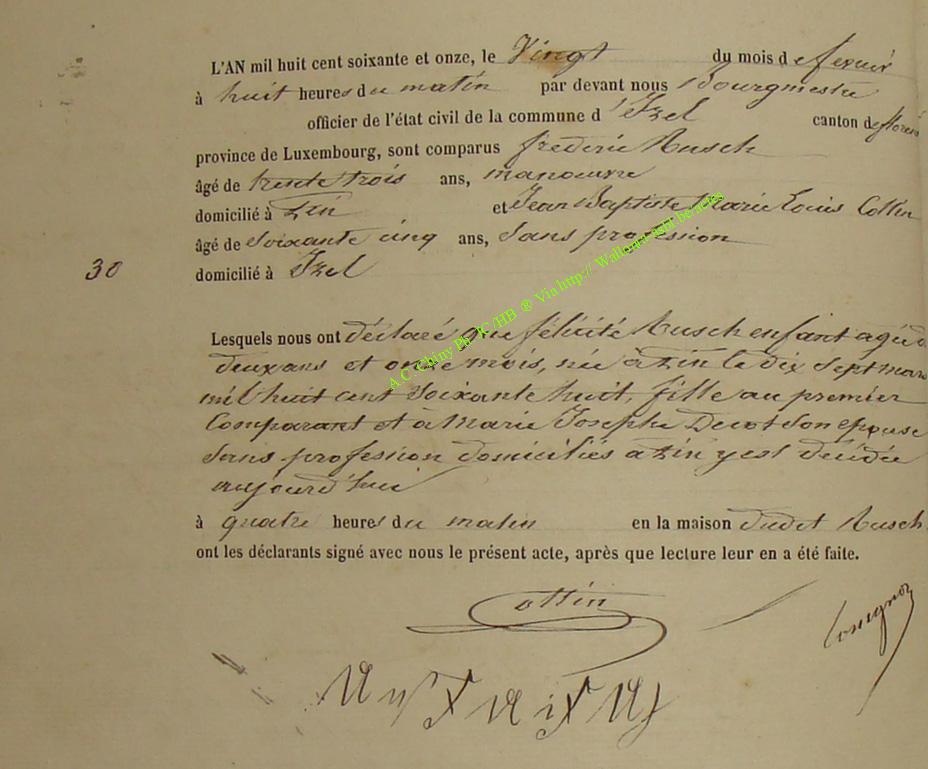 L'AN mil huit cent soixante et onze, le Vingt du mois de fevrier
à huit heures du matin par devant nous Bourgmestre
officier de l'état civil de la commune d'Izel canton de
province de Luxembourg, sont comparus frederic Rusch
âgé de trente trois ans, manoeuvre
domicilié à et Jean Baptiste Marie Louis Collin
âgé de Soixante cinq ans, Sans profession
30 domicilié à Izel
Lesquels nous ont déclaré que félicité Rusch enfant agée de
deux ans et onze mois, née à le dix Sept mars
mil huit cent Soixante huit, fille au premier
Comparant et à Marie Josephe Son epouse
Sans profession domiciliés a y est décédée
aujourd'hui
à quatre heures du matin en la maison dudit Rusch
ont les déclarants signé avec nous le présent acte, après que lecture leur en a été faite.
A.C. Chiny Ph. JC/HB ® Via http:// Wallonia-asbl.be:actes